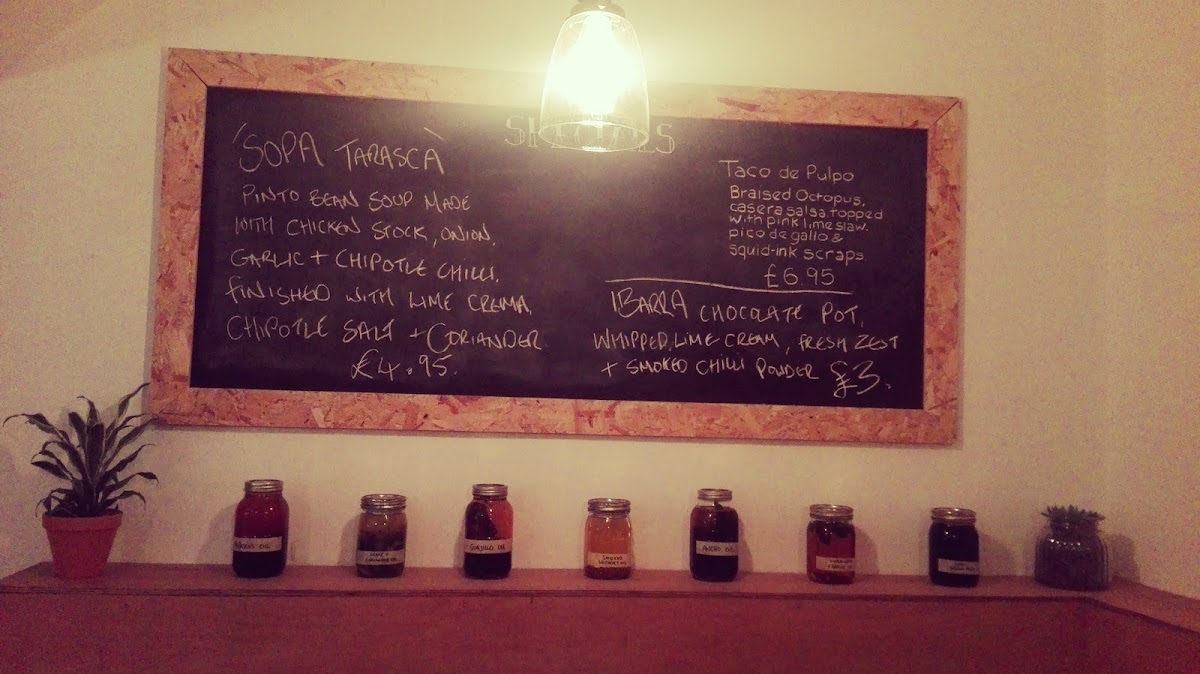 SPECIALS
'SOPA TARASCA'
PINTO BEAN SOUP MADE
WITH CHICKEN STOCK, ONION,
GARLIC + CHIPOTLE CHILLI.
FINISHED WITH LIME CREMA,
CHIPOTLE SALT + CORIANDER
£4.95.
Taco de Pulpo
Braised Octopus,
casera salsa, topped
with pink lime slaw,
pico de gallo &
squid-ink scraps
£6.95
IBARRA CHOCOLATE POT,
WHIPPED, LIME CREAM, FRESH ZEST
+ SMOKED CHILLI POWDER £3.
OIL
GUAJILLO OIL
SMOKED
ANCHO OIL